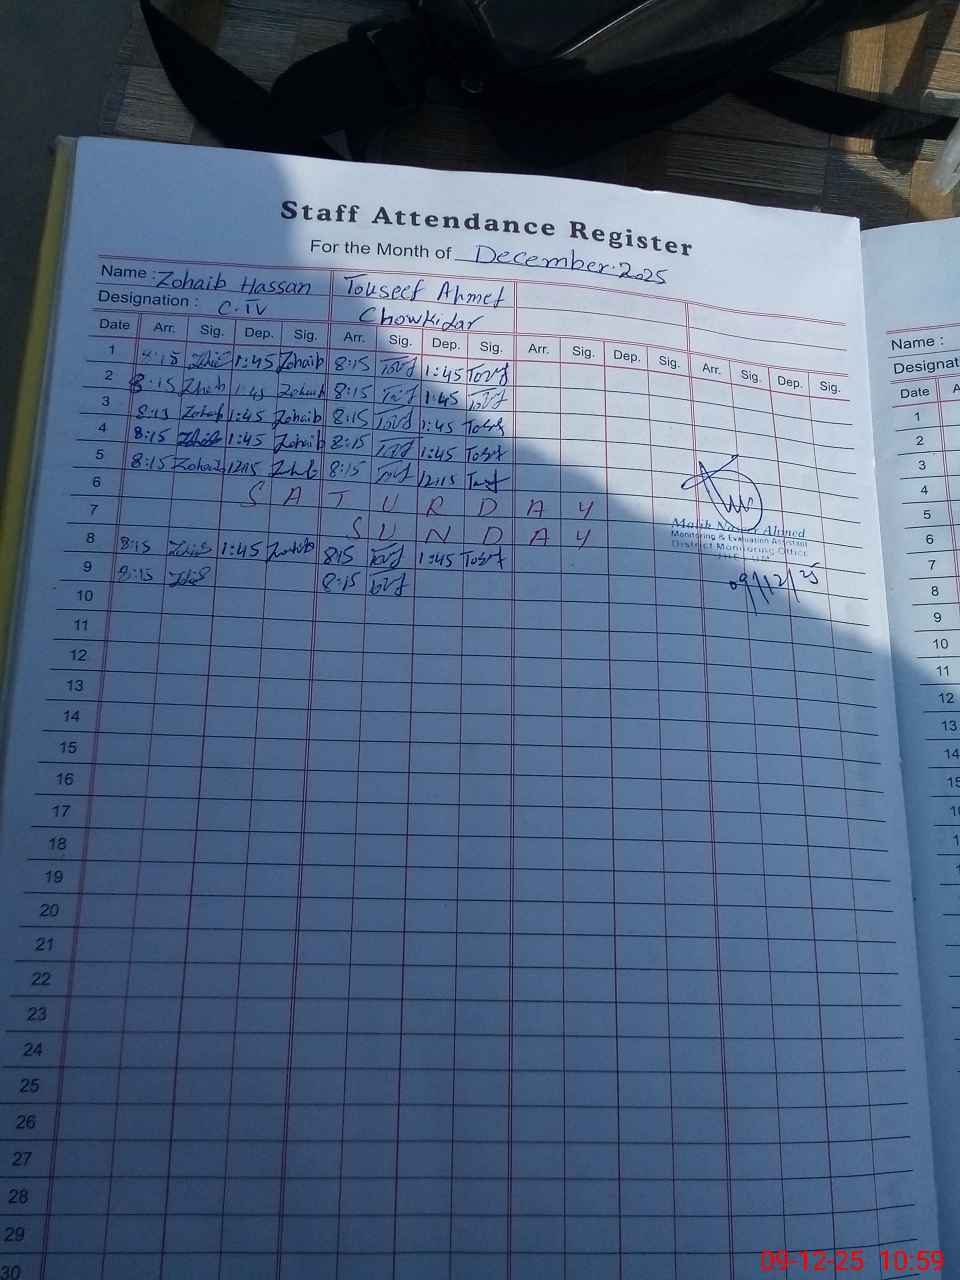 Staff Attendance Register
For the Month of December 2025
Name : Zohaib Hassan Touseef Ahmed
Designation : C-IV Chowkidar
Date Arr. Sig. Dep. Sig. Arr. Sig. Dep. Sig. Arr. Sig. Dep. Sig. Arr. Sig. Dep. Sig.
1 8:15 1:45 Zohaib 8:15 1:45
2 8:15 Zohaib 1:45 Zohaib 8:15 1:45
3 8:15 Zohaib 1:45 Zohaib 8:15 1:45
4 8:15 1:45 Zohaib 8:15 1:45
5 8:15 Zohaib 12:15 8:15 12:15
6 SATURDAY
7 SUNDAY
8 8:15 1:45 Zohaib 8:15 1:45
9 8:15 8:15
10
11
12
13
14
15
16
17
18
19
20
21
22
23
24
25
26
27
28
29
30
Ahmed
Monitoring & Evaluation Assistant
District Monitoring Office
09/12/25
Name :
Designat
Date A
1
2
3
4
5
6
7
8
9
10
11
12
13
14
09-12-25 10:59